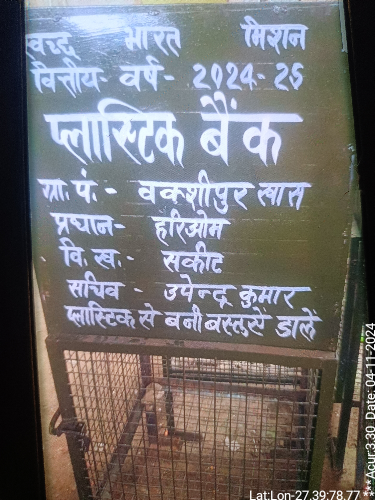 स्वच्छ भारत मिशन
वित्तीय- वर्ष- 2024-25
प्लास्टिक बैंक
ग्रा. पं. - वक्शीपुर खास
प्रधान- हरिओम
वि. ख. - सकीट
सचिव - उपेन्द्र कुमार
प्लास्टिक से बनी बस्तुऐं डालें
Lat:Lon-27.39:78.77
**Acur:3.30 Date: 04-11-2024